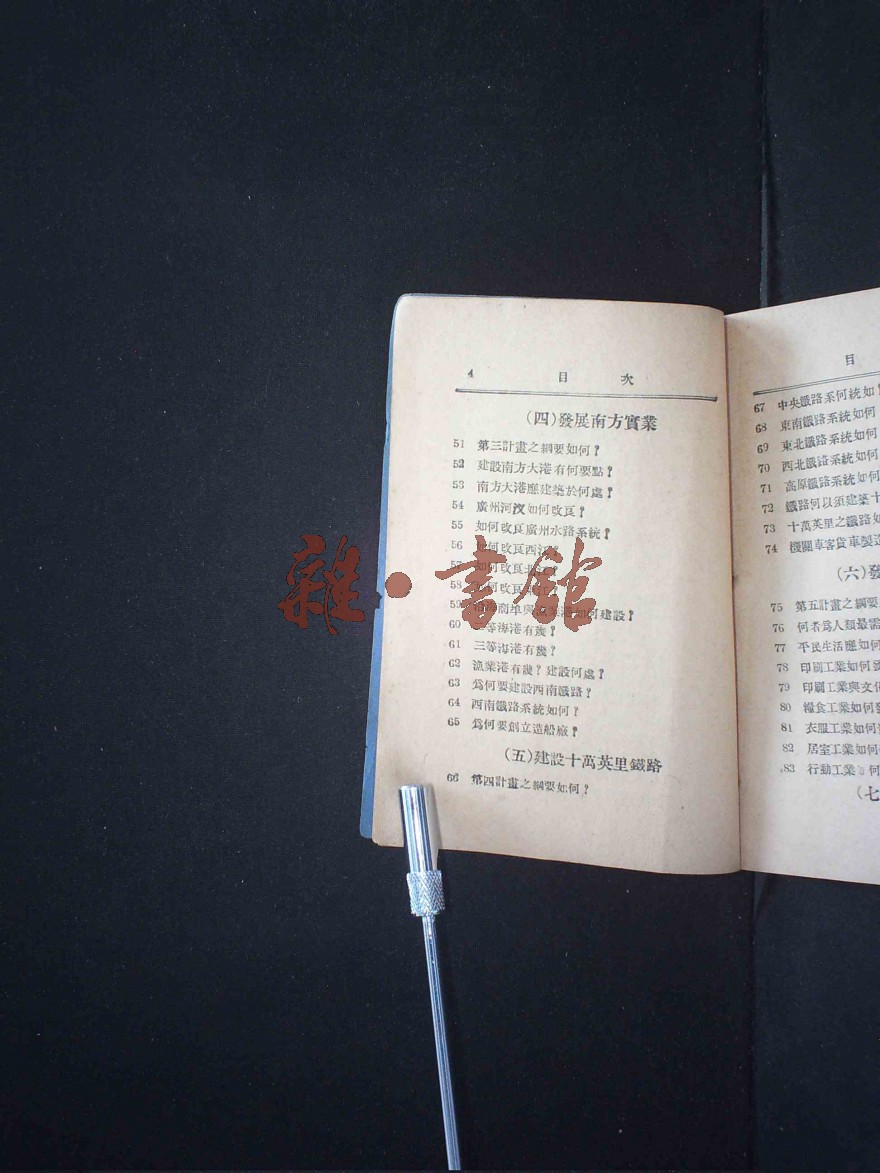 4 目 次
(四)發展南方實業
51 第三計畫之綱要如何?
52 建設南方大港有何要點?
53 南方大港應建築於何處?
54 廣州河汊如何改良?
55 如何改良廣州水路系統?
56 如何改良西江
57 如何改良
58 如何改良
59 如何建設?
60 二等海港有幾?
61 三等海港有幾?
62 漁業港有幾?建設何處?
63 爲何要建設西南鐵路?
64 西南鐵路系統如何?
65 爲何要創立造船廠?
(五)建設十萬英里鐵路
66 第四計畫之綱要如何?
目
67 中央鐵路系何統如
68 東南鐵路系統如何
69 東北鐵路系統如何
70 西北鐵路系統如何
71 高原鐵路系統如何
72 鐵路何以須建築十
73 十萬英里之鐵路如
74 機關車客貨車製造
(六)發
75 第五計畫之綱要
76 何者爲人類最需
77 平民生活應如何
78 印刷工業如何
79 印刷工業與文化
80 糧食工業如何
81 衣服工業如何
82 居室工業如何
83 行動工業 何
(七
雜·書館